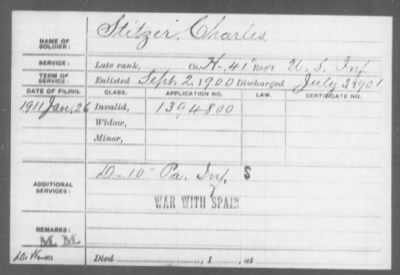 NAME OF SOLDIER: Stitzer, Charles
SERVICE: Late rank, Co. H. 41" Reg't U. S. Inf
TERM OF SERVICE: Enlisted Sept. 2 1900 Discharged July 3 1901
DATE OF FILING. CLASS. APPLICATION NO. LAW. CERTIFICATE NO.
1911 Jan, 26 Invalid, 1394800
Widow,
Minor,
ADDITIONAL SERVICES: D- 10" Pa. Inf. S
WAR WITH SPAIN
REMARKS: M. M.
Died , 1 , at